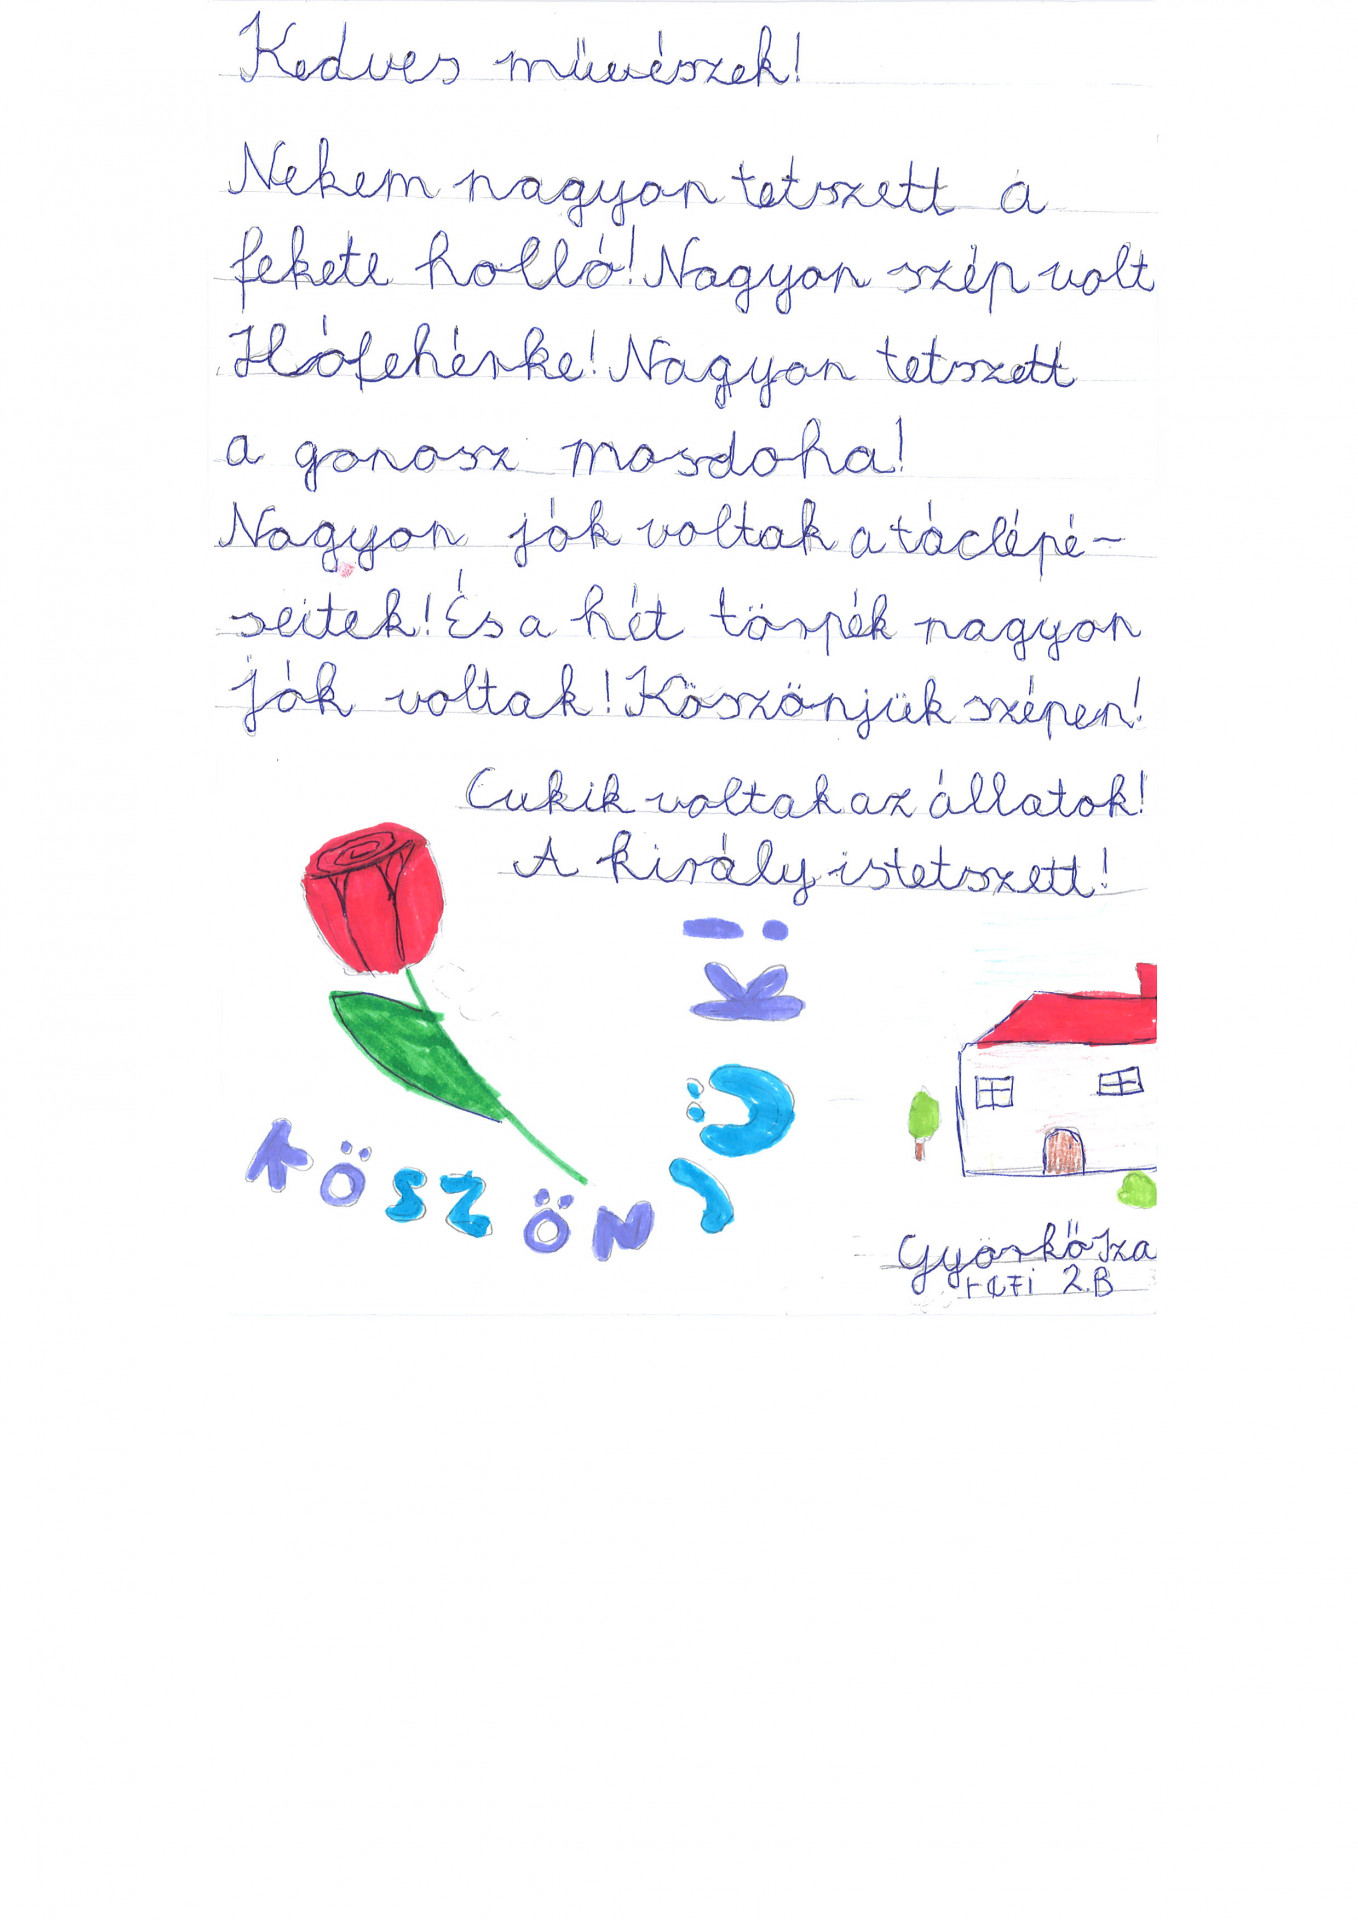 Kedves művészek!
Nekem nagyon tetszett a
fekete holló! Nagyon szép volt
Hófehérke! Nagyon tetszett
a gonosz mosdoha!
Nagyon jók voltak a táclépé-
seitek! És a hét törpék nagyon
jók voltak! Köszönjük szépen!
Cukik voltak az állatok!
A király is tetszett!
KÖSZÖNJÜK!
Györkő Iza
2.B